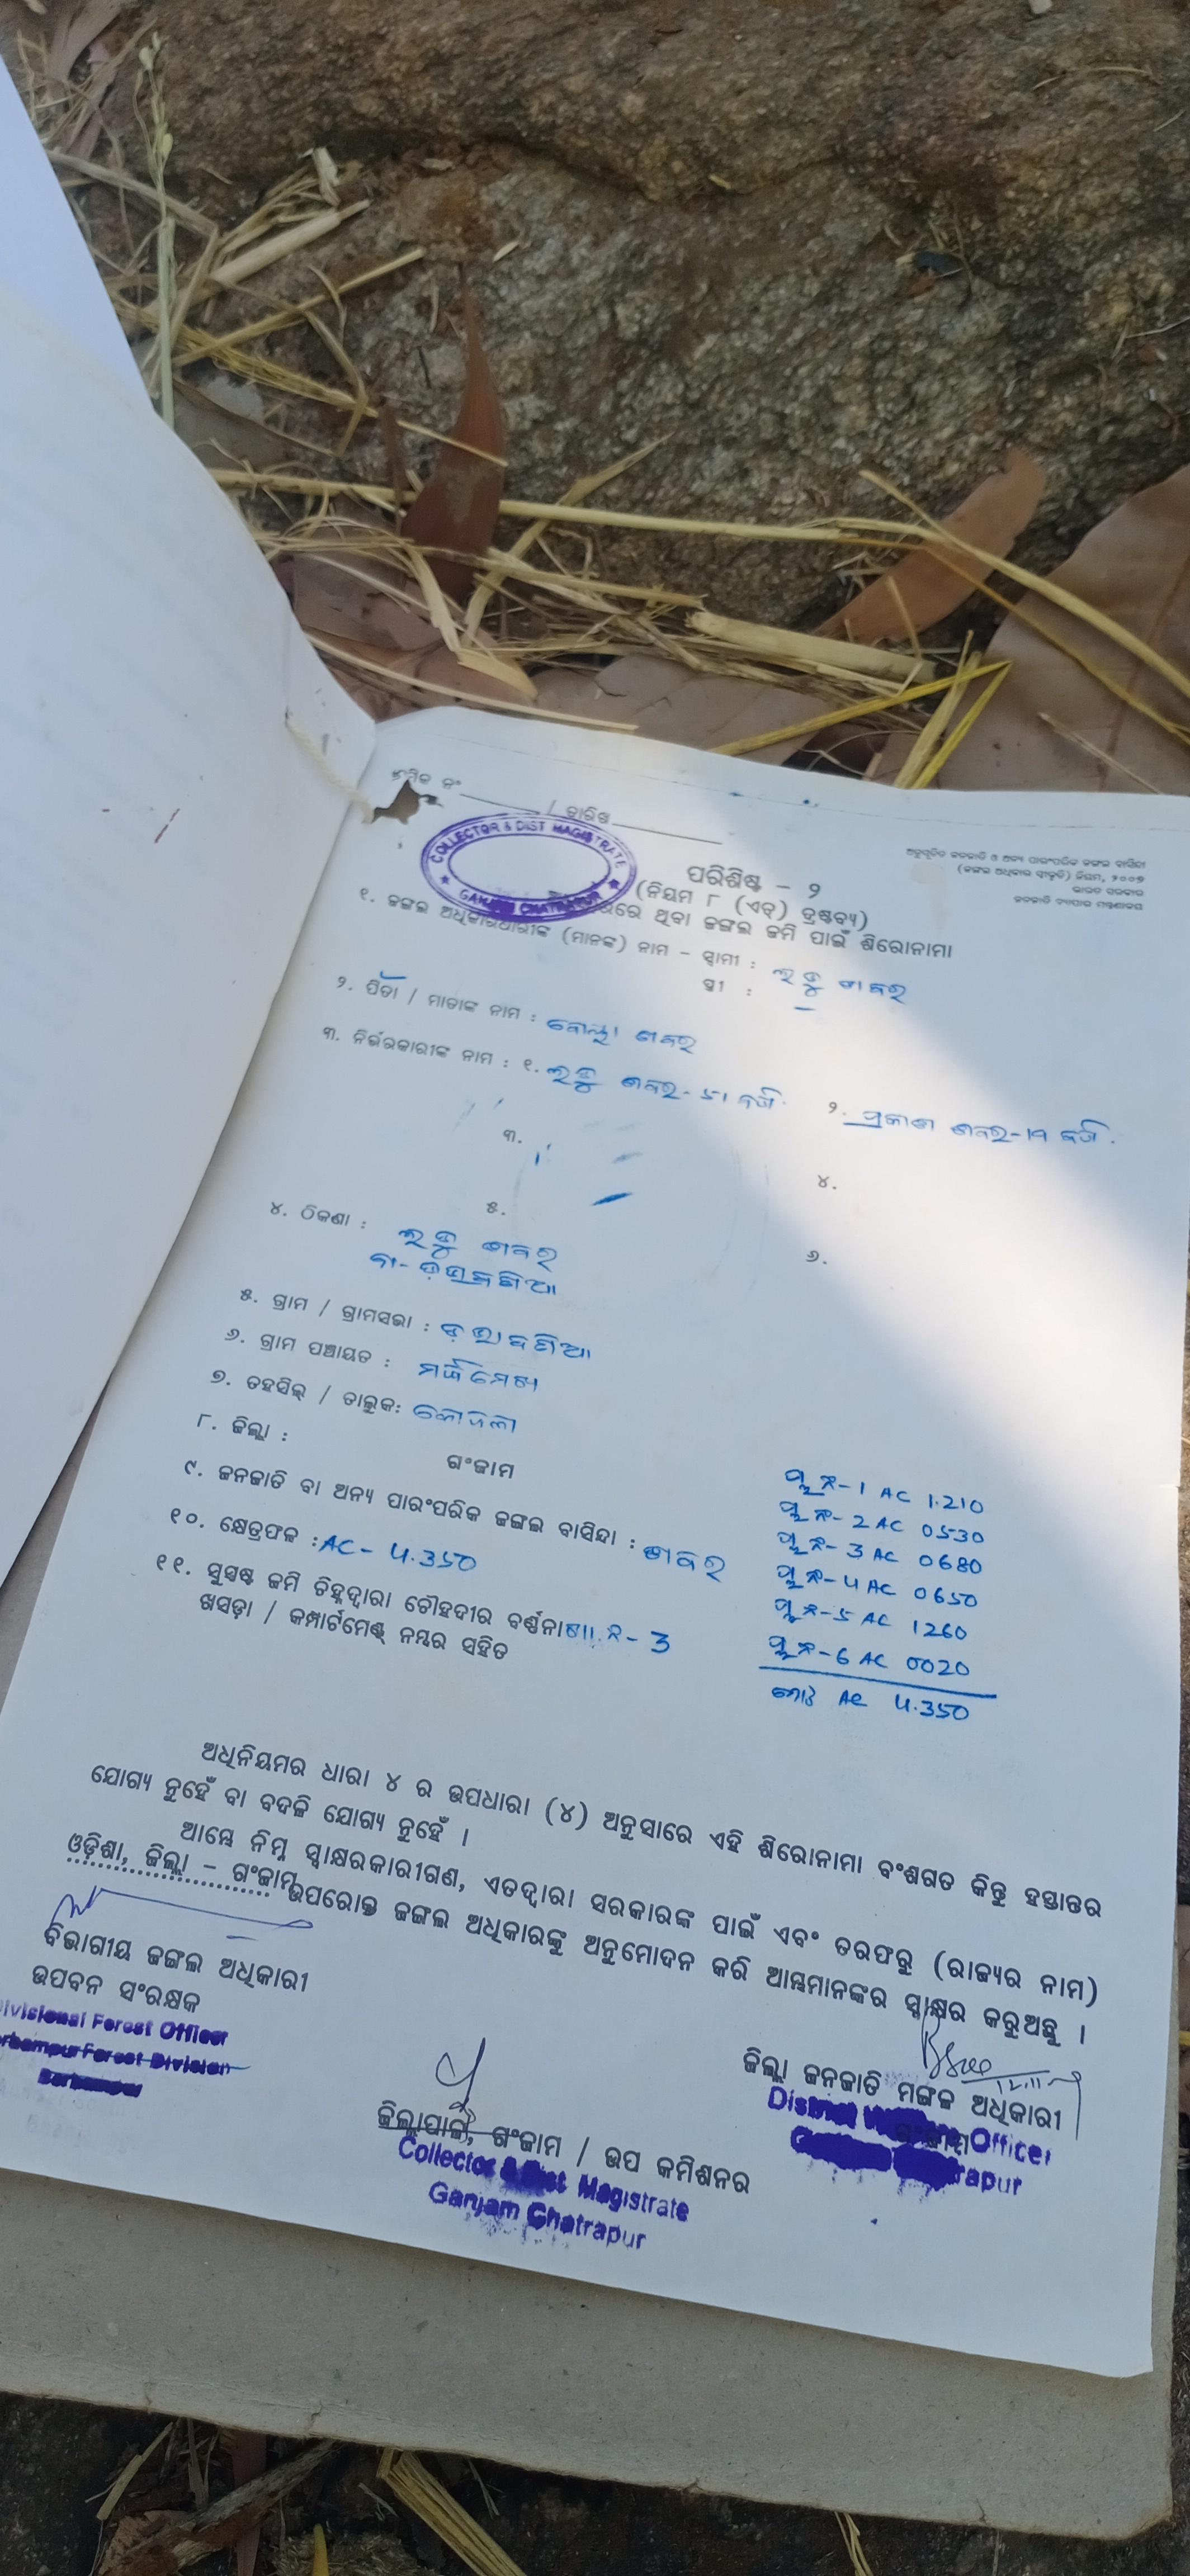 କ୍ରମିକ ନଂ / ତାରିଖ
COLLECTOR & DIST MAGISTRATE
GANJAM CHATRAPUR
ଅନୁସୂଚିତ ଜନଜାତି ଓ ଅନ୍ୟ ପାରଂପରିକ ଜଙ୍ଗଲ ବାସିନ୍ଦା
(ଜଙ୍ଗଲ ଅଧିକାର ସ୍ୱୀକୃତି) ନିୟମ, ୨୦୦୭
ଭାରତ ସରକାର
ଜନଜାତି ବ୍ୟାପାର ମନ୍ତ୍ରଣାଳୟ
ପରିଶିଷ୍ଟ - ୨
(ନିୟମ ୮ (ଏଚ୍) ଦ୍ରଷ୍ଟବ୍ୟ)
ଥିବା ଜଙ୍ଗଲ ଜମି ପାଇଁ ଶିରୋନାମା
୧. ଜଙ୍ଗଲ ଅଧିକାରଧାରୀଙ୍କ (ମାନଙ୍କ) ନାମ - ସ୍ୱାମୀ : ଶବର
ସ୍ତ୍ରୀ : -
୨. ପିତା / ମାତାଙ୍କ ନାମ : ଶବର
୩. ନିର୍ଭରକାରୀଙ୍କ ନାମ : ୧. ଶବର - ୫୧ ବର୍ଷ ୨. ପ୍ରକାଶ ଶବର - ୧୩ ବର୍ଷ
୩.
୪.
୫.
୬.
୪. ଠିକଣା : ଶବର
୫. ଗ୍ରାମ / ଗ୍ରାମସଭା :
୬. ଗ୍ରାମ ପଞ୍ଚାୟତ :
୭. ତହସିଲ୍ / ତାଲୁକ:
୮. ଜିଲ୍ଲା : ଗଂଜାମ
୯. ଜନଜାତି ବା ଅନ୍ୟ ପାରଂପରିକ ଜଙ୍ଗଲ ବାସିନ୍ଦା : ଶବର
୧୦. କ୍ଷେତ୍ରଫଳ : AC - 4.350
୧୧. ସୁସ୍ପଷ୍ଟ ଜମି ଚିହ୍ନଦ୍ୱାରା ଚୌହଦୀର ବର୍ଣ୍ଣନା - 3
ଖସଡ଼ା / କମ୍ପାର୍ଟମେଣ୍ଟ୍ ନମ୍ବର ସହିତ
ପ୍ଲ ନଂ - 1 AC 1.210
ପ୍ଲ ନଂ - 2 AC 0530
ପ୍ଲ ନଂ - 3 AC 0680
ପ୍ଲ ନଂ - 4 AC 0650
ପ୍ଲ ନଂ - 5 AC 1260
ପ୍ଲ ନଂ - 6 AC 0020
ମୋଟ AC 4.350
ଅଧିନିୟମର ଧାରା ୪ ର ଉପଧାରା (୪) ଅନୁସାରେ ଏହି ଶିରୋନାମା ବଂଶଗତ କିନ୍ତୁ ହସ୍ତାନ୍ତର
ଯୋଗ୍ୟ ନୁହେଁ ବା ବଦଳି ଯୋଗ୍ୟ ନୁହେଁ ।
ଆମ୍ଭେ ନିମ୍ନ ସ୍ୱାକ୍ଷରକାରୀଗଣ, ଏତଦ୍ୱାରା ସରକାରଙ୍କ ପାଇଁ ଏବଂ ତରଫରୁ (ରାଜ୍ୟର ନାମ)
ଓଡ଼ିଶା, ଜିଲ୍ଲା - ଗଂଜାମ ଉପରୋକ୍ତ ଜଙ୍ଗଲ ଅଧିକାରଙ୍କୁ ଅନୁମୋଦନ କରି ଆମ୍ଭମାନଙ୍କର ସ୍ୱାକ୍ଷର କରୁଅଛୁ ।
ବିଭାଗୀୟ ଜଙ୍ଗଲ ଅଧିକାରୀ
ଉପବନ ସଂରକ୍ଷକ
Divisional Forest Officer
Forest Division
ଜିଲ୍ଲାପାଳ, ଗଂଜାମ / ଉପ କମିଶନର
Collector & Dist Magistrate
Ganjam Chatrapur
ଜିଲ୍ଲା ଜନଜାତି ମଙ୍ଗଳ ଅଧିକାରୀ
ଗଂଜାମ
District Officer